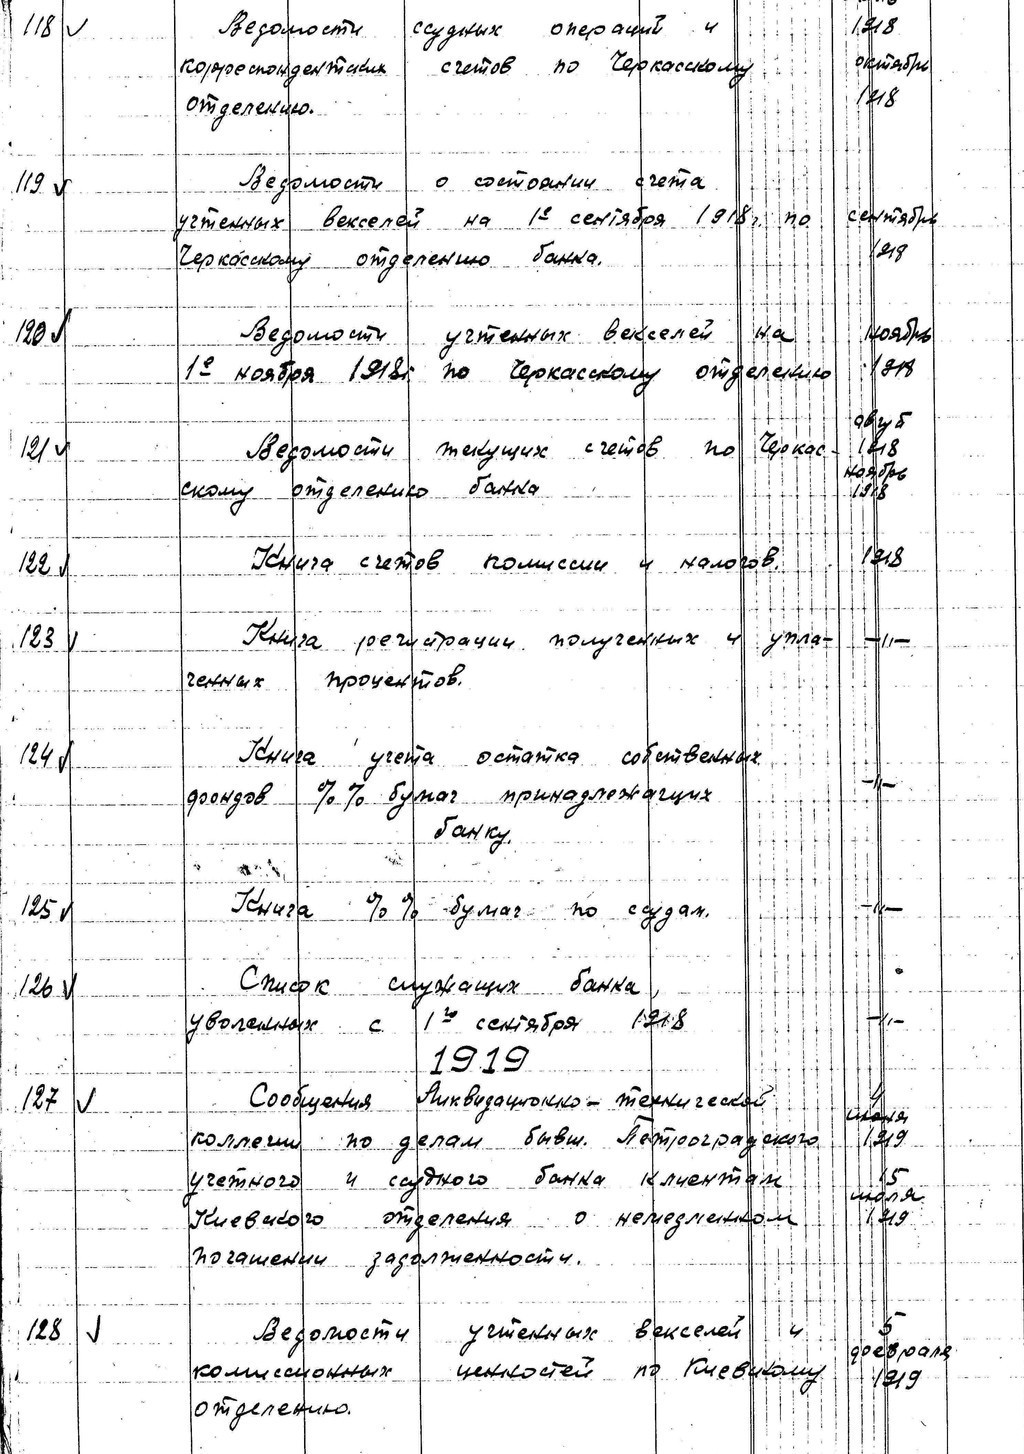 118 Ведомости ссудных операций и 1918
корреспондентских счетов по Черкасскому октябрь
отделению. 1918
119 Ведомости о состоянии счета
учтенных векселей на 1е сентября 1918г. по сентябрь
Черкасскому отделению банка. 1918
120 Ведомости учтенных векселей на ноябрь
1е ноября 1918г. по Черкасскому отделению 1918
август
121 Ведомости текущих счетов по Черкас- 1918
ноябрь
скому отделению банка 1918
122 Книга счетов комиссии и налогов. 1918
123 Книга регистрации полученных и упла- -"-
ченных процентов.
124 Книга учета остатка собственных
фондов %% бумаг принадлежащих -"-
банку.
125 Книга %% бумаг по ссудам. -"-
126 Список служащих банка,
уволенных с 1го сентября 1918 -"-
1919
127 Сообщения Ликвидационно-технической 4
июня
коллегии по делам бывш. Петроградского 1919
учетного и ссудного банка клиентам 15
июля
Киевского отделения о немедленном 1919
погашении задолженности.
128 Ведомости учтенных векселей и 5
февраля
комиссионных ценностей по Киевскому 1919
отделению.